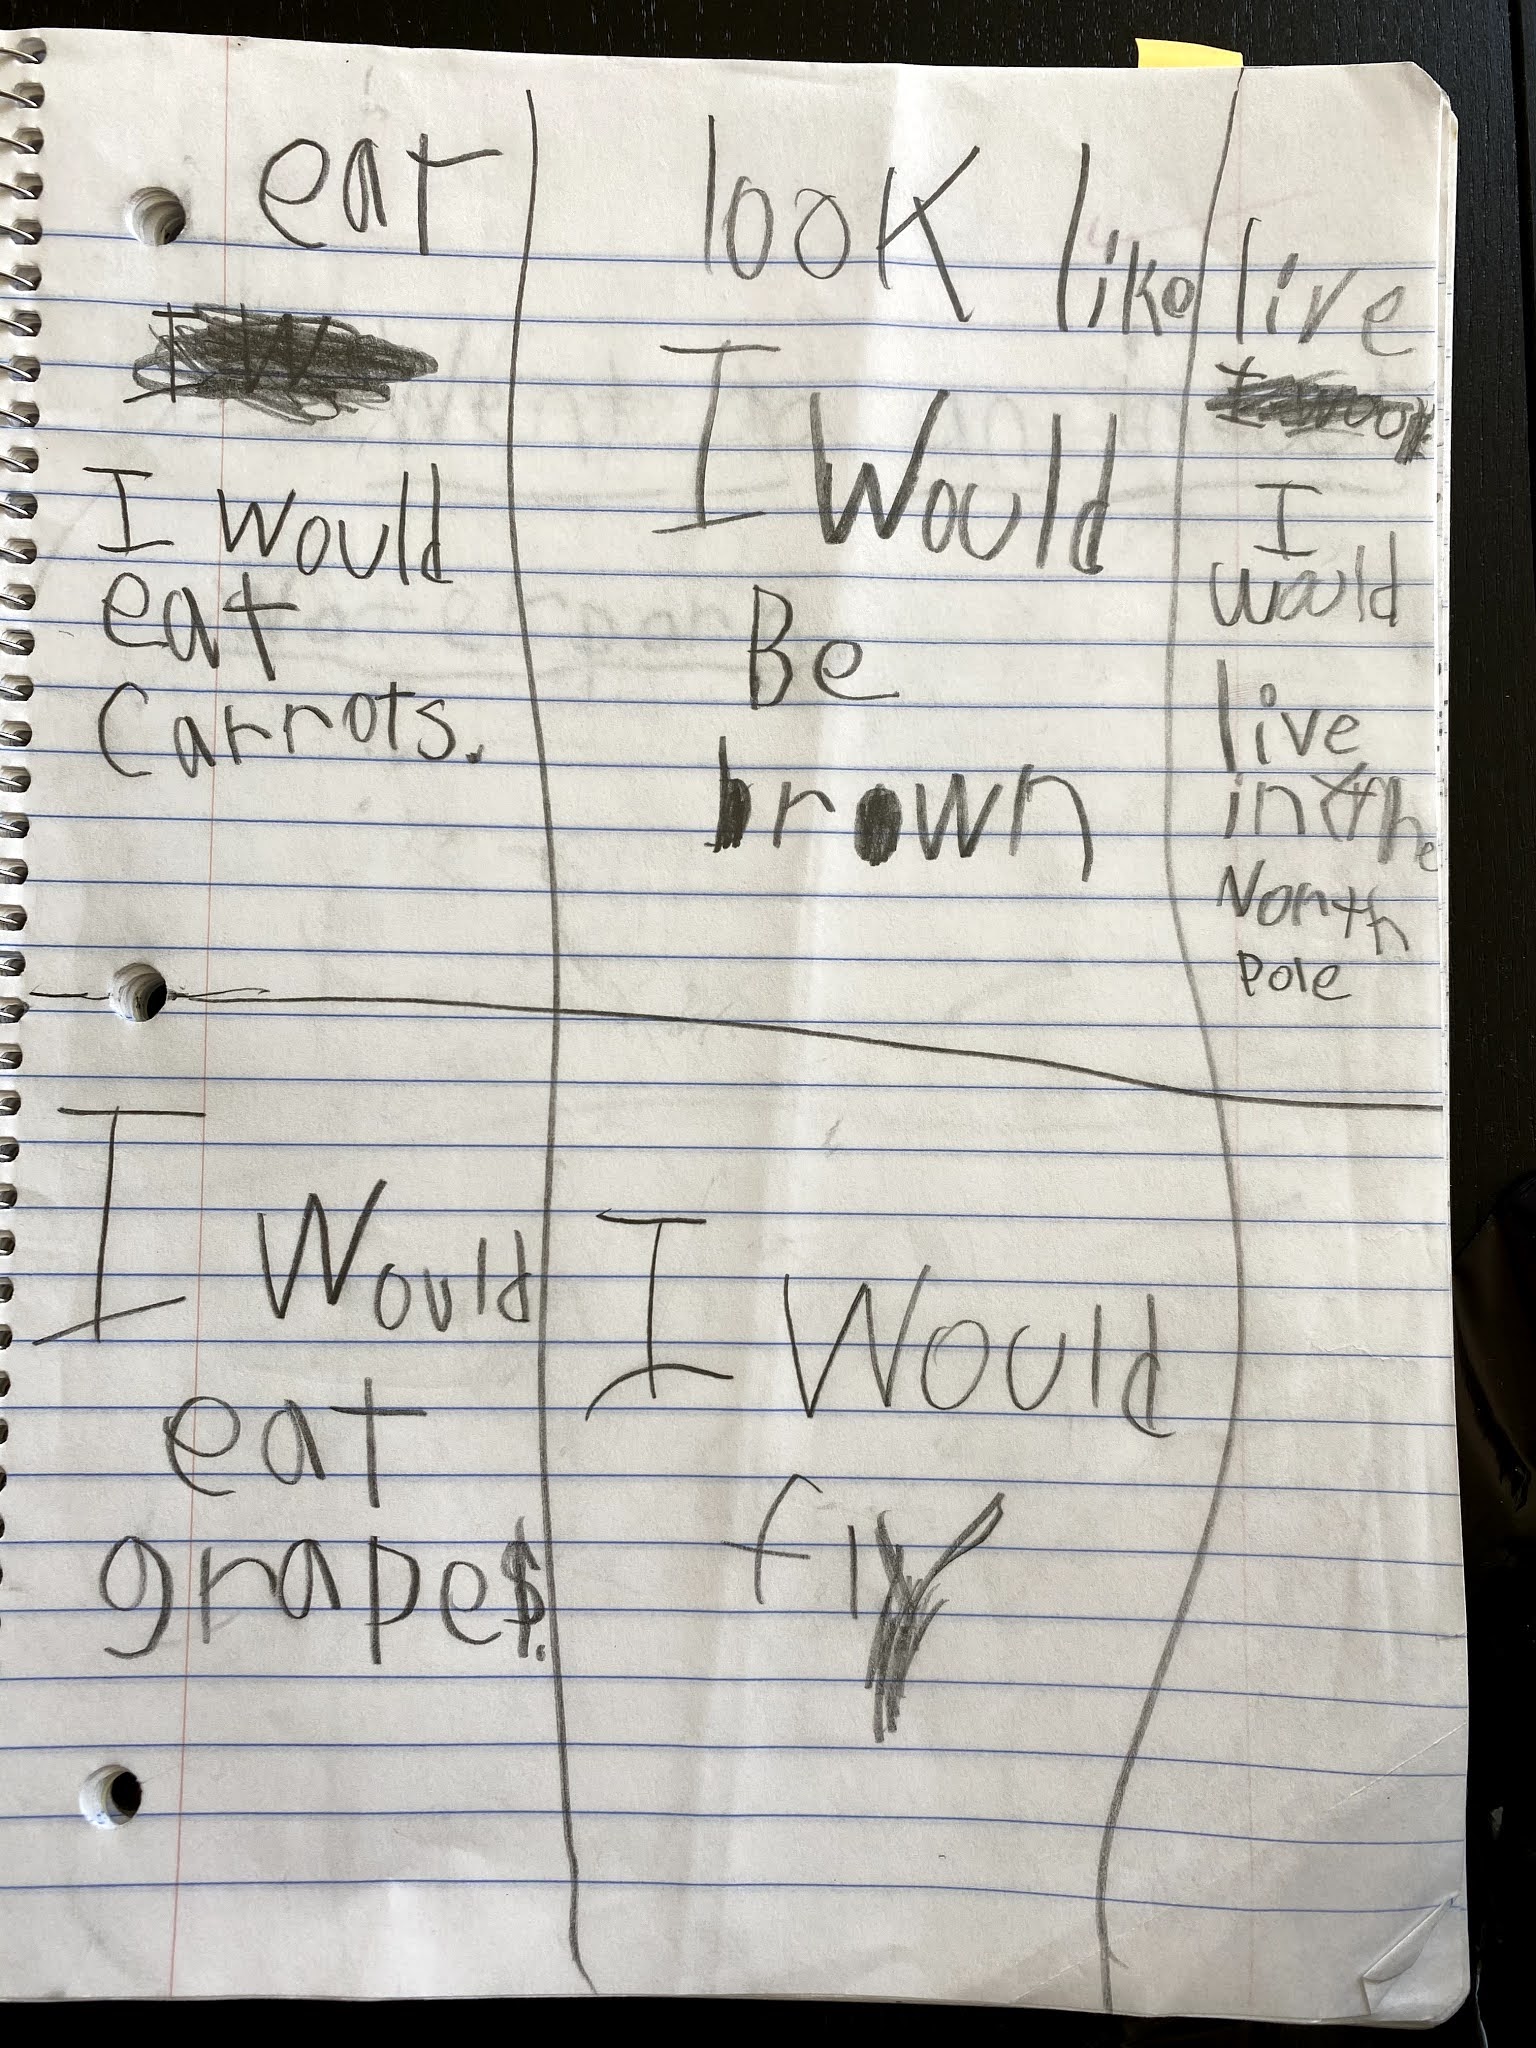 eat
I would
eat
Carrots.
look like
I Would
Be
brown
live
I
would
live
in the
North
pole
I Would
eat
grapes.
I Would
fly